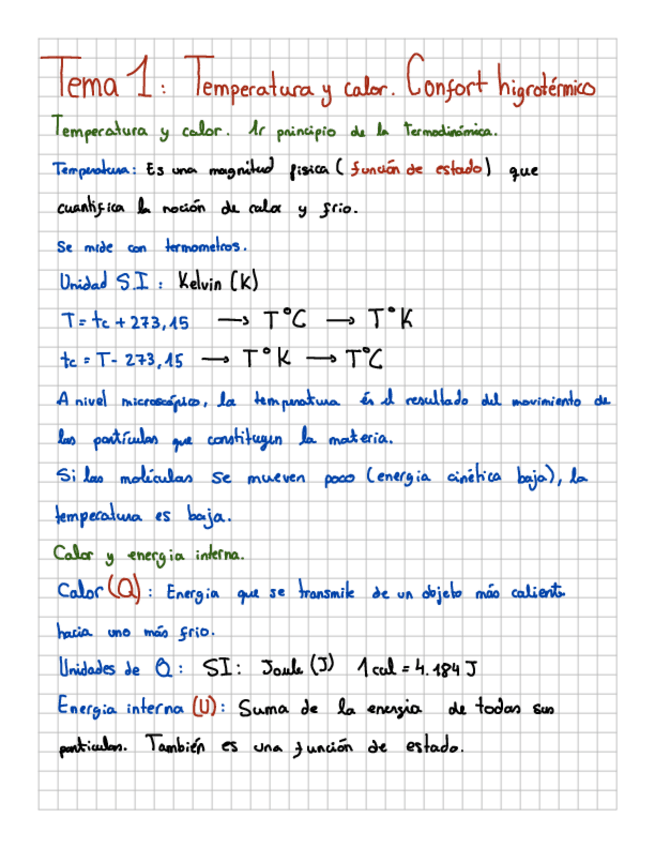 Tema 1: Temperatura y calor. Confort higrotérmico
Temperatura y calor. 1r principio de la Termodinámica.
Temperatura: Es una magnitud física (función de estado) que
cuantifica la noción de calor y frio.
Se mide con termometros.
Unidad S.I: Kelvin (K)
T = tc + 273,15 → T°C → T°K
tc = T - 273,15 → T°K → T°C
A nivel microscópico, la temperatura és el resultado del movimiento de
las partículas que constituyen la materia.
Si las moléculas se mueven poco (energia cinética baja), la
temperatura es baja.
Calor y energia interna.
Calor (Q): Energia que se transmite de un objeto más caliente
hacia uno más frio.
Unidades de Q: SI: Joule (J) 1 cal = 4.184 J
Energia interna (U): Suma de la energia de todas sus
particulas. También es una función de estado.